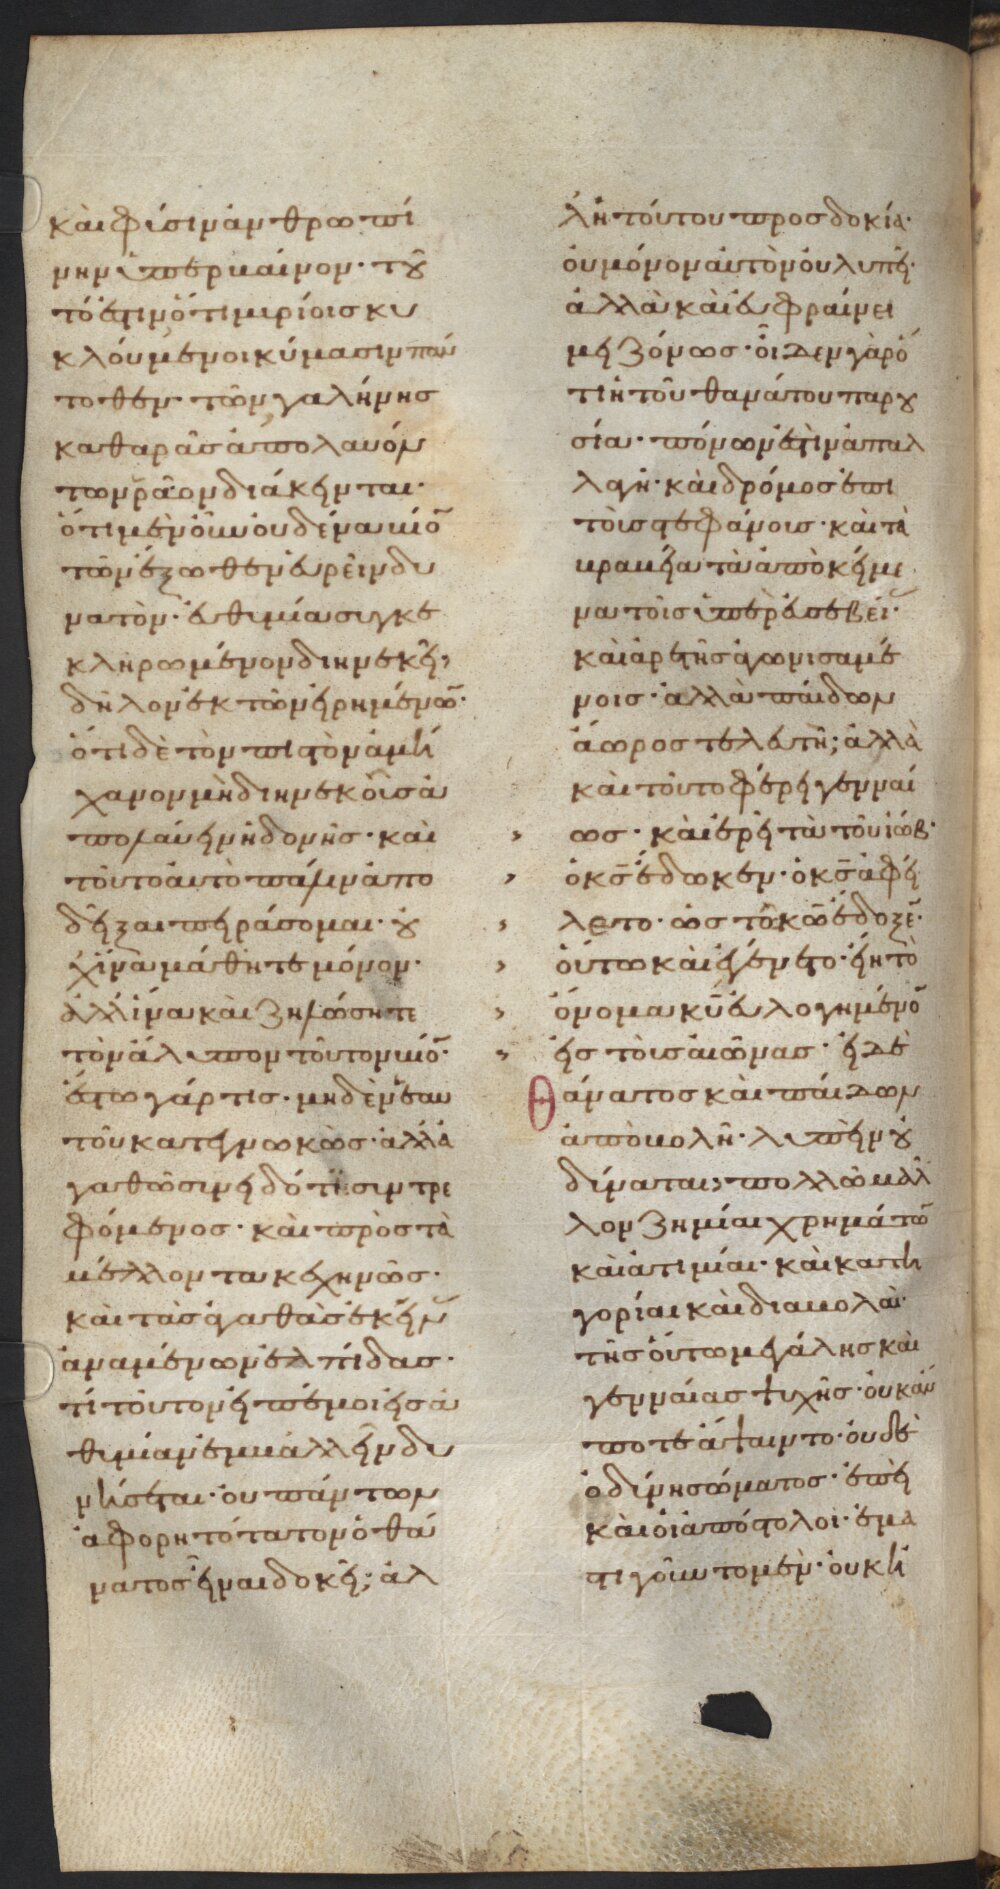 καὶ φύσιν ἀνθρωπί
νην ὑπερβαίνον· του
τό ἐστιν ὅτι μυρίοις κυ
κλούμενοι κύμασιν παν
τοθεν· τῶν γαλήνης
καθαρᾶς ἀπολαυόν
των ρᾶον διάκεινται·
ὅτι μὲν οὖν οὐδένα βίον
τῶν ἔξωθεν εὑρεῖν δυ
νατὸν· εὐθυμία συγκε
κληρωμένον διηνεκεῖ,
δῆλον ἐκ τῶν εἰρημένων·
ὅτι δὲ τὸν πιστὸν ἀμή
χανον μὴ διηνεκοῦς ἀ
πολαύειν ἡδονῆς· καὶ
τοῦτο αὐτὸ πάλιν ἀπο
δεῖξαι πειράσομαι· οὐ
χ ἵνα μάθητε μόνον·
ἀλλ ἵνα καὶ ζηλώσητε
τὸν ἄλυπον τοῦτον βίον·
ἔστω γάρ τις· μηδὲν ἑαυ
τοῦ κατεγνωκὼς· ἀλλὰ
γαθῶ συνειδότι συντρε
φόμενος· καὶ πρὸς τὰ
μέλλοντα κεχηνῶς·
καὶ τὰς ἀγαθὰς ἐκεῖν
ἀναμένων ἐλπίδας·
τί τοῦτον εἰπέ μοι εἰς ἀ
θυμίαν ἐμβάλλειν δυ
νήσεται· οὐ πάντων
ἀφορητότατον ὁ θά
νατος εἶναι δοκεῖ; ἀλ
λ ἡ τούτου προσδοκία·
οὐ μόνον αὐτὸν οὐ λυπεῖ·
ἀλλὰ καὶ εὐφραίνει
μειζόνως· οἶδεν γὰρ ὅ
τι ἡ τοῦ θανάτου παρου
σία· πόνων ἐστὶν ἀπαλ
λαγὴ· καὶ δρόμος ἐπὶ
τοὺς στεφάνους· καὶ τὰ
βραβεῖα τὰ ἀποκείμε
να τοῖς ὑπὲρ εὐσεβείας·
καὶ ἀρετῆς ἀγωνισαμέ
νοις· ἀλλὰ παίδων
ἄωρος τελευτὴ; ἀλλὰ
καὶ τοῦτο φέρει γενναί
ως· καὶ ἐρεῖ τὰ τοῦ ἰώβ·
ὁ κς ἔδωκεν· ὁ κς ἀφεί
λετο· ὡς τῶ κω ἔδοξεν·
οὕτω καὶ ἐγένετο· εἴη τὸ
ὄνομα κυ εὐλογημένον
εἰς τοὺς αἰῶνας· εἰ δὲ
Θάνατος καὶ παίδων
ἀποβολὴ· λυπεῖν οὐ
δύναται· πολλῶ μᾶλ
λον ζημίαι χρημάτων
καὶ ἀτιμίαι· καὶ κατη
γορίαι καὶ διαβολαὶ·
τῆς οὕτω μεγάλης καὶ
γενναίας ψυχῆς· οὐκ ἄν
ποτε ἅψαιντο· οὐδὲ
ὀδύνη σώματος· ἐπεὶ
καὶ οἱ ἀπόστολοι· ἐμα
στιγοῦντο μὲν· οὐκ ἤ